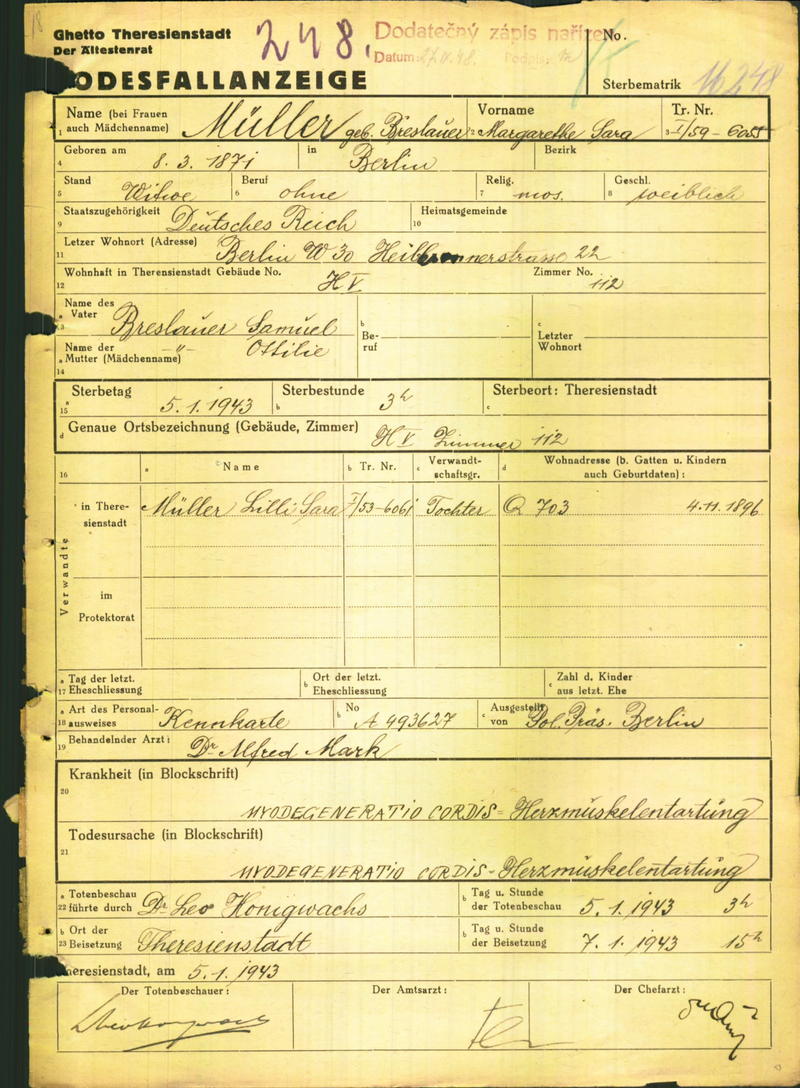 Ghetto Theresienstadt
Der Ältestenrat
248.
Dodatečný zápis naříz
Datum:
Podpis:
No.
TODESFALLANZEIGE
Sterbematrik 16248
Name (bei Frauen auch Mädchenname) Müller geb. Breslauer
Vorname Margarethe Sara
Tr. Nr. I/59-6055
1 2 3
4 Geboren am 8.3.1871 in Berlin Bezirk
5 Stand Witwe 6 Beruf ohne 7 Relig. mos. 8 Geschl. weiblich
9 Staatszugehörigkeit Deutsches Reich 10 Heimatsgemeinde
11 Letzer Wohnort (Adresse) Berlin W 30 Heilbronnerstrasse 22
12 Wohnhaft in Therensienstadt Gebäude No. H V Zimmer No. 112
Name des
a Vater Breslauer Samuel
b Beruf
c Letzter Wohnort
Name der -"- Ottilie
a Mutter (Mädchenname)
14
15 a Sterbetag 5.1.1943 b Sterbestunde 3h c Sterbeort: Theresienstadt
d Genaue Ortsbezeichnung (Gebäude, Zimmer) H V Zimmer 112
16 a Name b Tr. Nr. c Verwandtschaftsgr. d Wohnadresse (b. Gatten u. Kindern auch Geburtdaten):
Verwandte
in Theresienstadt Müller Lilli Sara I/53-6061 Tochter Q 703 4.11.1896
im Protektorat
17 a Tag der letzt. Eheschliessung b Ort der letzt. Eheschliessung c Zahl d. Kinder aus letzt. Ehe
18 a Art des Personalausweises Kennkarte b No A 493627 c Ausgestellt von Pol. Präs. Berlin
19 Behandelnder Arzt: Dr Alfred Mark
Krankheit (in Blockschrift)
20 MYODEGENERATIO CORDIS = Herzmuskelentartung
Todesursache (in Blockschrift)
21 MYODEGENERATIO CORDIS - Herzmuskelentartung
22 a Totenbeschau führte durch Dr Leo Konigwachs b Tag u. Stunde der Totenbeschau 5.1.1943 3h
23 b Ort der Beisetzung Theresienstadt b Tag u. Stunde der Beisetzung 7.1.1943 15h
Theresienstadt, am 5.1.1943
Der Totenbeschauer: Der Amtsarzt: Der Chefarzt: